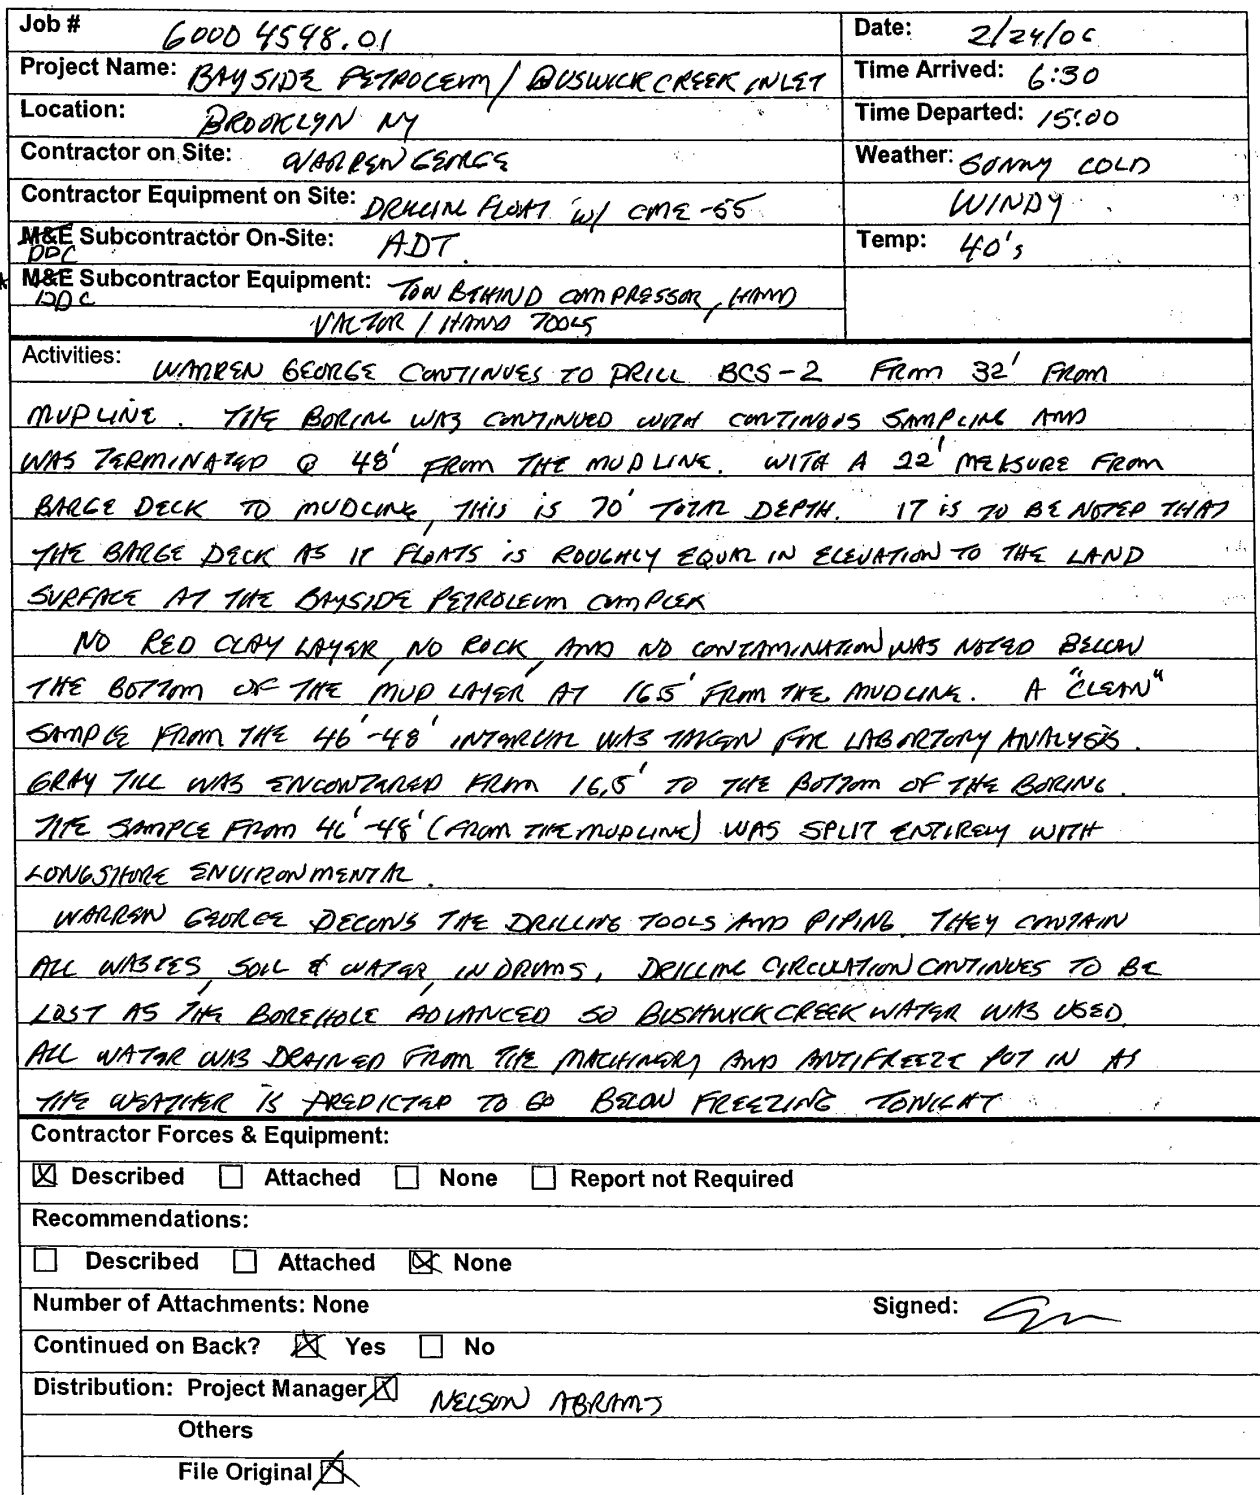 Job # 6000 4598.01 Date: 2/24/06
Project Name: BAYSIDE PETROLEUM / BUSWICK CREEK INLET Time Arrived: 6:30
Location: BROOKLYN NY Time Departed: 15:00
Contractor on Site: WARREN GEORGE Weather: SUNNY COLD
Contractor Equipment on Site: DRILLING FLOAT W/ CME-55 WINDY
M&E Subcontractor On-Site: ADT. Temp: 40's
DDC
* M&E Subcontractor Equipment: TOW BEHIND COMPRESSOR, HAND
DDC
VACTOR / HAND TOOLS
Activities: WARREN GEORGE CONTINUES TO DRILL BCS-2 FROM 32' FROM
MUDLINE. THE BORING WAS CONTINUED WITH CONTINOUS SAMPLING AND
WAS TERMINATED @ 48' FROM THE MUDLINE. WITH A 22' MEASURE FROM
BARGE DECK TO MUDLINE, THIS IS 70' TOTAL DEPTH. IT IS TO BE NOTED THAT
THE BARGE DECK AS IT FLOATS IS ROUGHLY EQUAL IN ELEVATION TO THE LAND
SURFACE AT THE BAYSIDE PETROLEUM COMPLEX
NO RED CLAY LAYER, NO ROCK, AND NO CONTAMINATION WAS NOTED BELOW
THE BOTTOM OF THE MUD LAYER AT 16.5' FROM THE MUDLINE. A "CLEAN"
SAMPLE FROM THE 46'-48' INTERVAL WAS TAKEN FOR LABORTORY ANALYSIS.
GRAY TILL WAS ENCONTERED FROM 16.5' TO THE BOTTOM OF THE BORING.
THE SAMPLE FROM 46'-48' (FROM THE MUDLINE) WAS SPLIT ENTIRELY WITH
LONGSHORE ENVIRONMENTAL.
WARREN GEORGE DECONS THE DRILLING TOOLS AND PIPING. THEY CONTAIN
ALL WASTES, SOIL & WATER, IN DRUMS. DRILLING CIRCULATION CONTINUES TO BE
LOST AS THE BOREHOLE ADVANCED SO BUSHWICK CREEK WATER WAS USED.
ALL WATER WAS DRAINED FROM THE MACHINERY AND ANTIFREEZE PUT IN AS
THE WEATHER IS PREDICTED TO GO BELOW FREEZING TONIGHT
Contractor Forces & Equipment:
☒ Described ☐ Attached ☐ None ☐ Report not Required
Recommendations:
☐ Described ☐ Attached ☒ None
Number of Attachments: None Signed:
Continued on Back? ☒ Yes ☐ No
Distribution: Project Manager ☒ NELSON ABRAMS
Others
File Original ☒